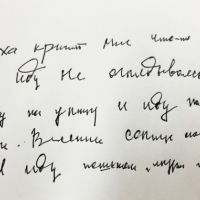 ха кричит мне что-то
иду не оглядываясь
у на улицу и иду по
Весеннее солнце
иду пешком, люди